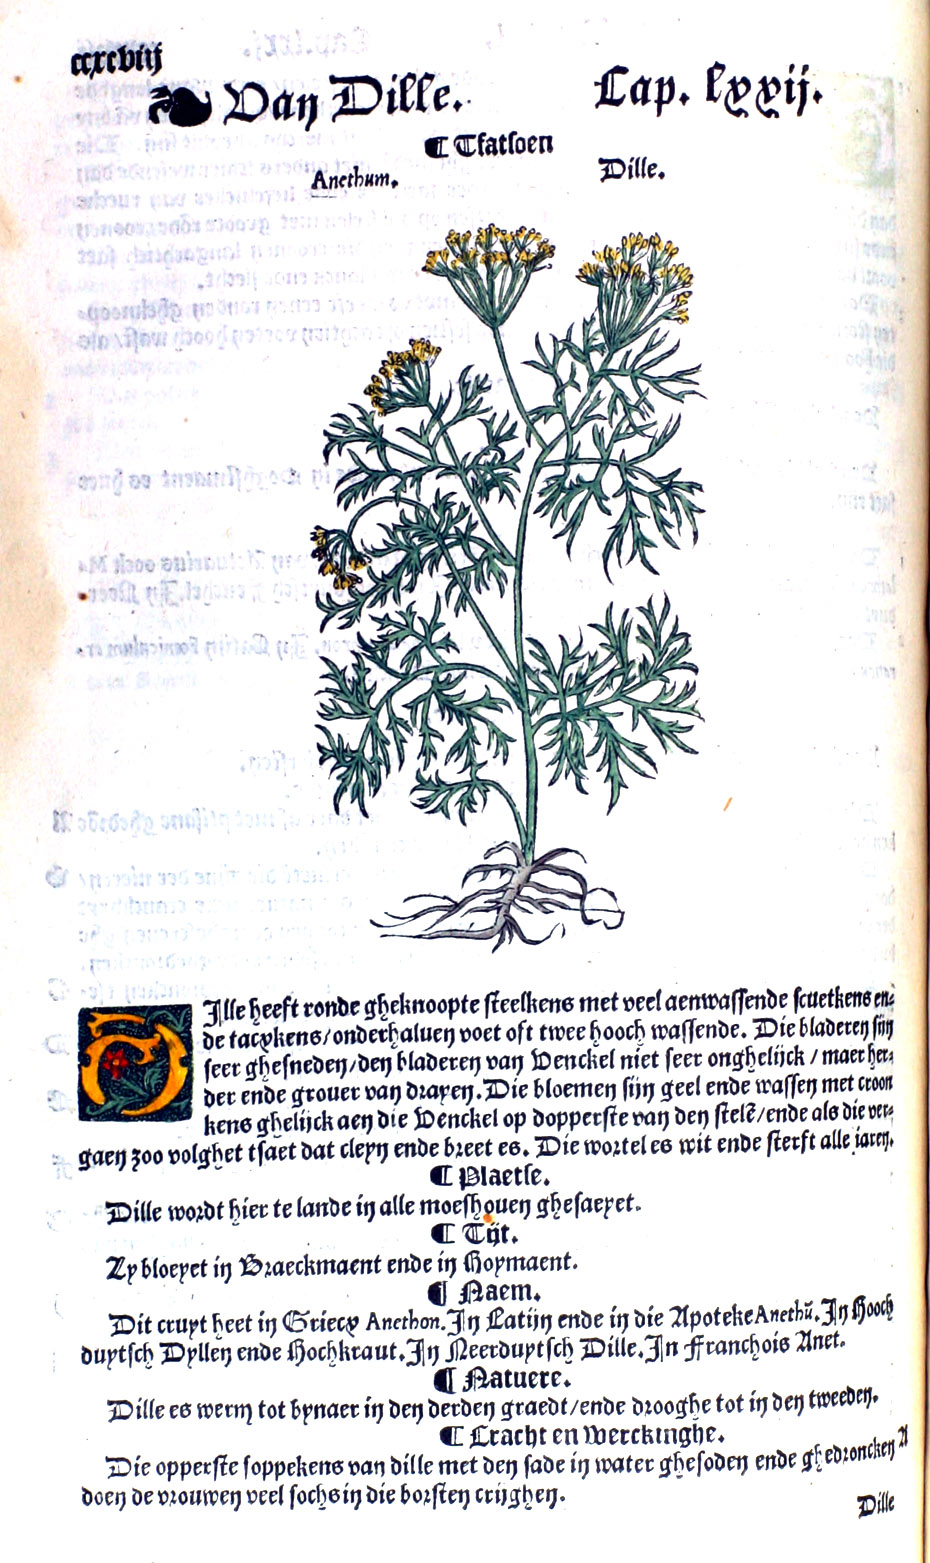 ccxcviij
Van Dille. Cap. lxxij.
¶ Tfatsoen
Anethum. Dille.
DIlle heeft ronde gheknoopte steelkens met veel aenwassende scuetkens en-
de tacxkens/onderhaluen voet oft twee hooch wassende. Die bladeren sijn
seer ghesneden/den bladeren van Venckel niet seer onghelijck/maer her-
der ende grouer van draxen. Die bloemen sijn geel ende wassen met croon
kens ghelijck aen die Venckel op dopperste van den stelē/ende als die ver-
gaen zoo volghet tsaet dat cleyn ende breet es. Die wortel es wit ende sterft alle iaren.
¶ Plaetse.
Dille wordt hier te lande in alle moeshouen ghesaeyet.
¶ Tijt.
Zy bloeyet in Braeckmaent ende in Hoymaent.
¶ Naem.
Dit cruyt heet in Griecx Anethon. In Latijn ende in die Apoteke Anethū. In Hooch
duytsch Dyllen ende Hochkraut. In Neerduytsch Dille. In Franchois Anet.
¶ Natuere.
Dille es werm tot bynaer in den derden graedt/ende drooghe tot in den tweeden.
¶ Cracht en Werckinghe.
Die opperste soppekens van dille met den sade in water ghesoden ende ghedroncken A
doen de vrouwen veel sochs in die borsten crijghen.
Dille